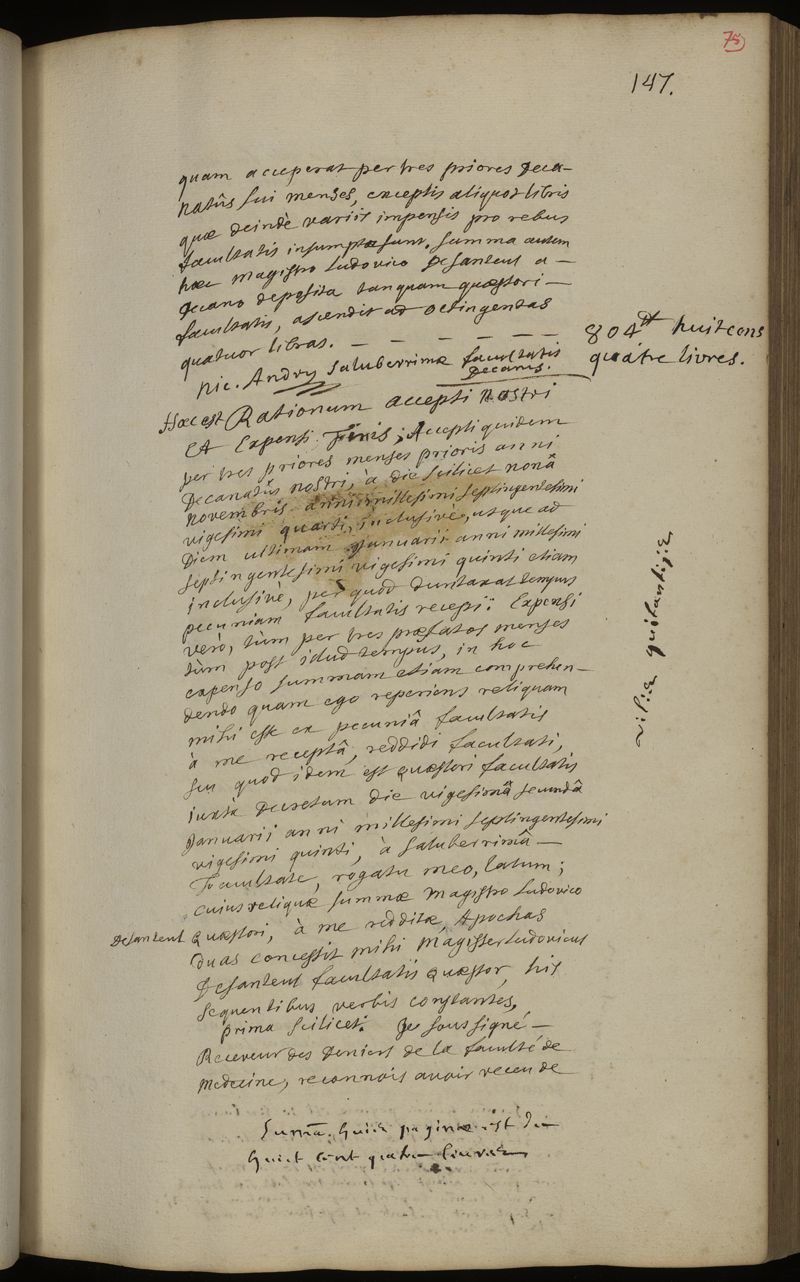 75
147.
quam acceperat per tres priores Deca-
natûs sui menses, exceptis aliquot libris
quæ deindè variis impensis pro rebus
facultatis insumptæ sunt. Summa autem
hæc Magistro Ludovico Desanteul a —
Decano deposita tanquam quæstori —
facultatis, ascendit ad octingentas
quatuor libras. — — — — — —
804tt huit cens
quatre livres.
Nic. Andry Saluberrimæ facultatis
Decanus.
Hæc est Rationum accepti nostri
Et Expensi Finis; Accepti quidem
per tres priores menses prioris anni
Decanatûs nostri, à die scilicet nonâ
novembris anni millesimi septingentesimi
vigesimi quarti, inclusivè, usque ad
Diem ultimam Januarii anni millesimi
septingentesimi vigesimi quinti etiam
inclusivè, per quod duntaxat tempus
pecuniam facultatis recepi: Expensi
verò, tùm per tres præfatos menses
tùm post illud tempus, in hoc
expenso summam etiam comprehen-
dendo quam ego reperiens reliquam
mihi esse ex pecuniâ facultatis
à me receptâ, reddidi facultati,
seu quod idem est quæstori facultatis
iuxtà Decretum die vigesimâ secundâ
Januarii anni millesimi septingentesimi
vigesimi quinti, à saluberrimâ —
Facultate, rogatu meo, latum;
cuius reliquæ summæ Magistro Ludovico
Desanteul quæstori, à me redditæ, Apochas
duas concessit mihi Magister Ludovicus
Desanteul facultatis quæstor, his
sequentibus verbis constantes,
prima scilicet. Je soussigné —
Receveur des deniers de la faculté de
Medecine, reconnois avoir receu de
quitantiæ
Summa huius paginæ est de
huict cent quatre livres